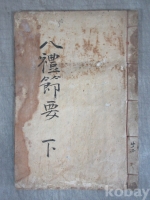 八禮節要 下
kobay